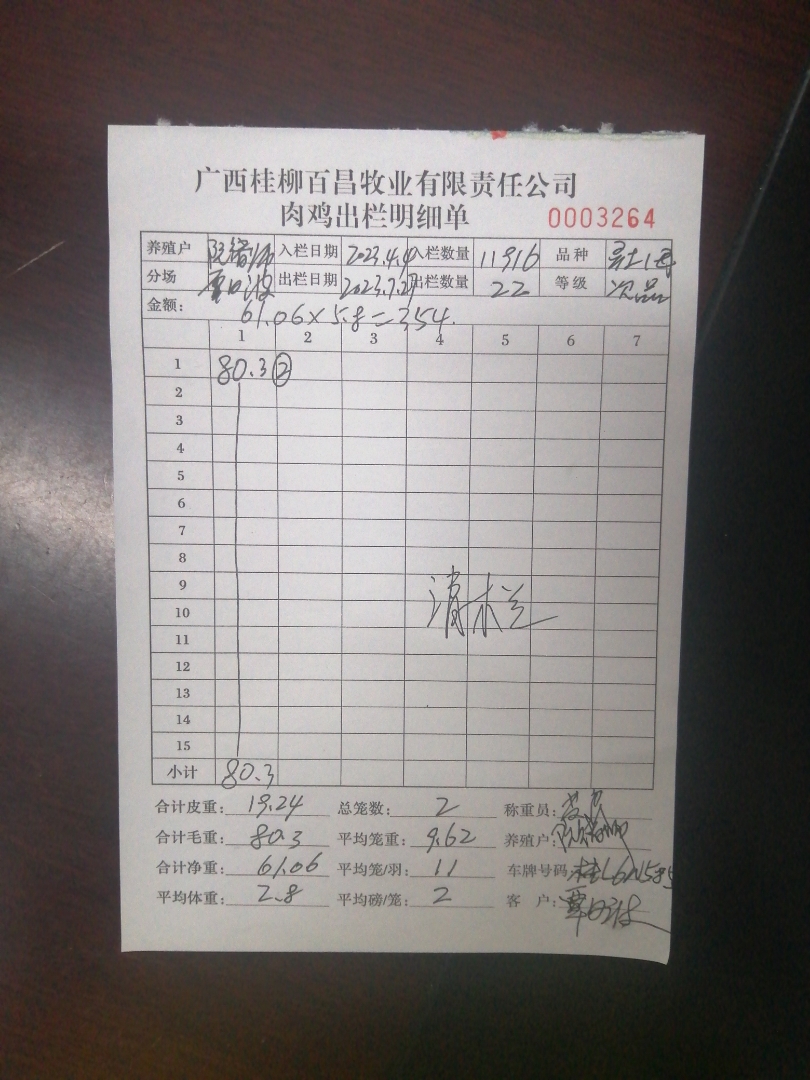 广西桂柳百昌牧业有限责任公司
肉鸡出栏明细单 0003264
养殖户 入栏日期 2023.4.9 入栏数量 11916 品种
分场 出栏日期 2023.7.27 出栏数量 22 等级 次品
金额: 61.06×5.8=354.
1 2 3 4 5 6 7
1 80.3 ②
2
3
4
5
6
7
8
9
10
11
12
13
14
15
清栏
小计 80.3
合计皮重: 19.24 总笼数: 2 称重员:
合计毛重: 80.3 平均笼重: 9.62 养殖户:
合计净重: 61.06 平均笼/羽: 11 车牌号码:
平均体重: 2.8 平均磅/笼: 2 客户: